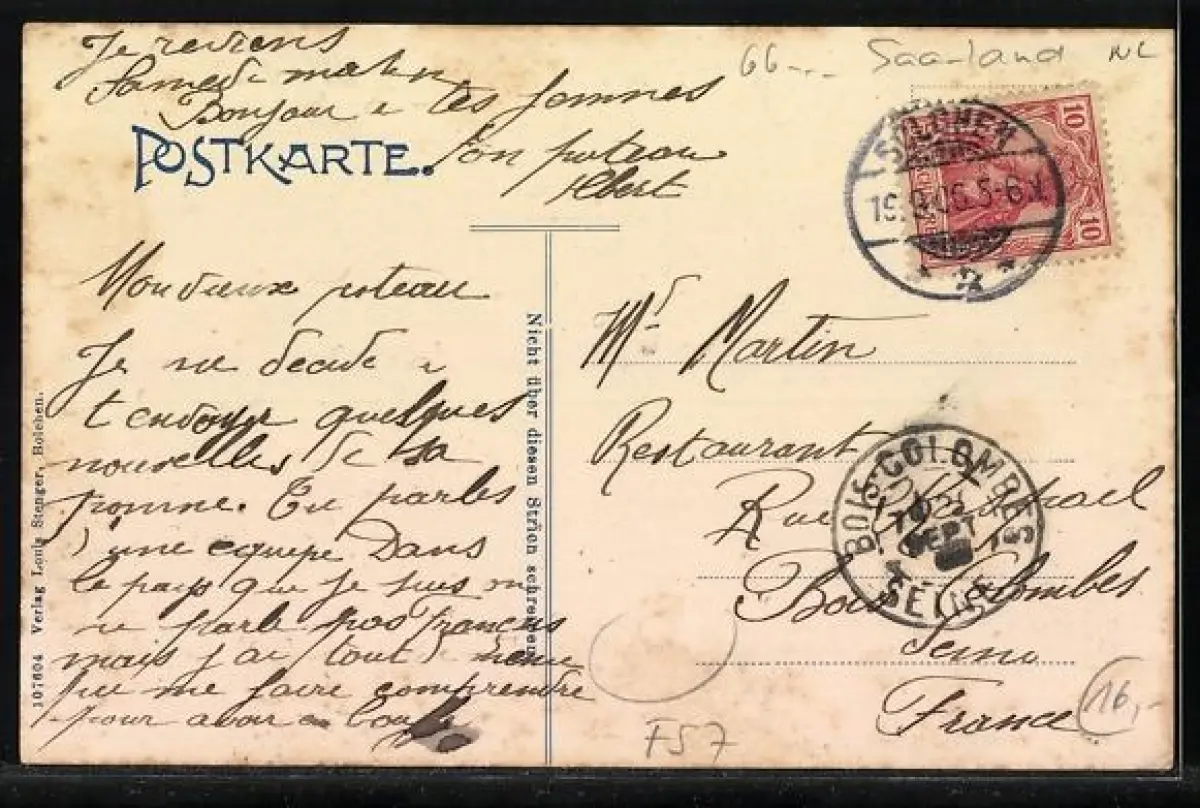 Je reviens
Samedi matin
Bonjour a tes femmes
Ton poteau
Albert
66-..
Saarland
NL
POSTKARTE.
10
10
BOLCHEN
19.9.06.5-6N
* 2 *
Mon vieux poteau
Je me decide a
t envoyer quelques
nouvelles de ta
pomme. Tu parles
d'une equipe Dans
le pays que je suis on
ne parle pas français
mais j ai tout même
pu me faire comprendre
pour avoir a
Nicht über diesen Strich schreiben
107604 Verlag Louis Stenger, Bolchen.
Mr Martin
Restaurant
Rue Raphael
Bois Colombes
Seine
France
BOIS-COLOMBES
SEPT
SEINE
F57
16,-